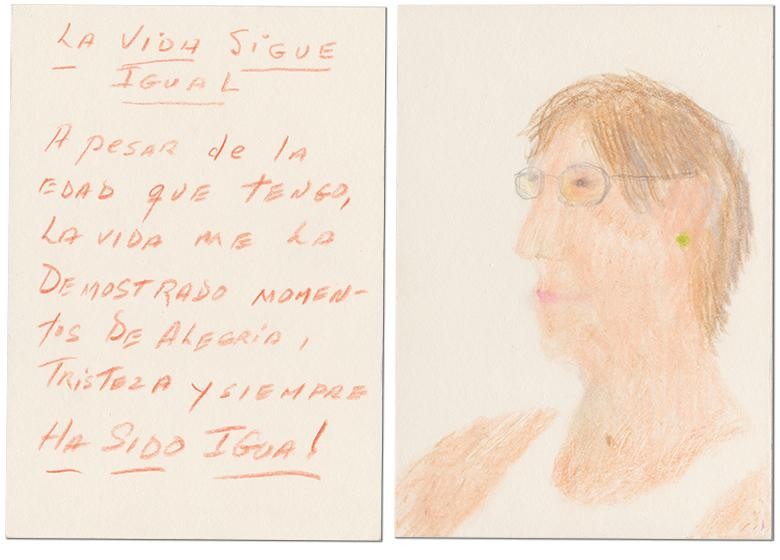 LA ViDA SiGUE
IGUAL
A pesar de la
EDAD QUE TENGO,
LA VIDA ME LA
DEMOSTRADO MOMEN-
tos DE ALEGRIA,
TRISTEZA y SIEMPRE
HA SIDO IGUAL